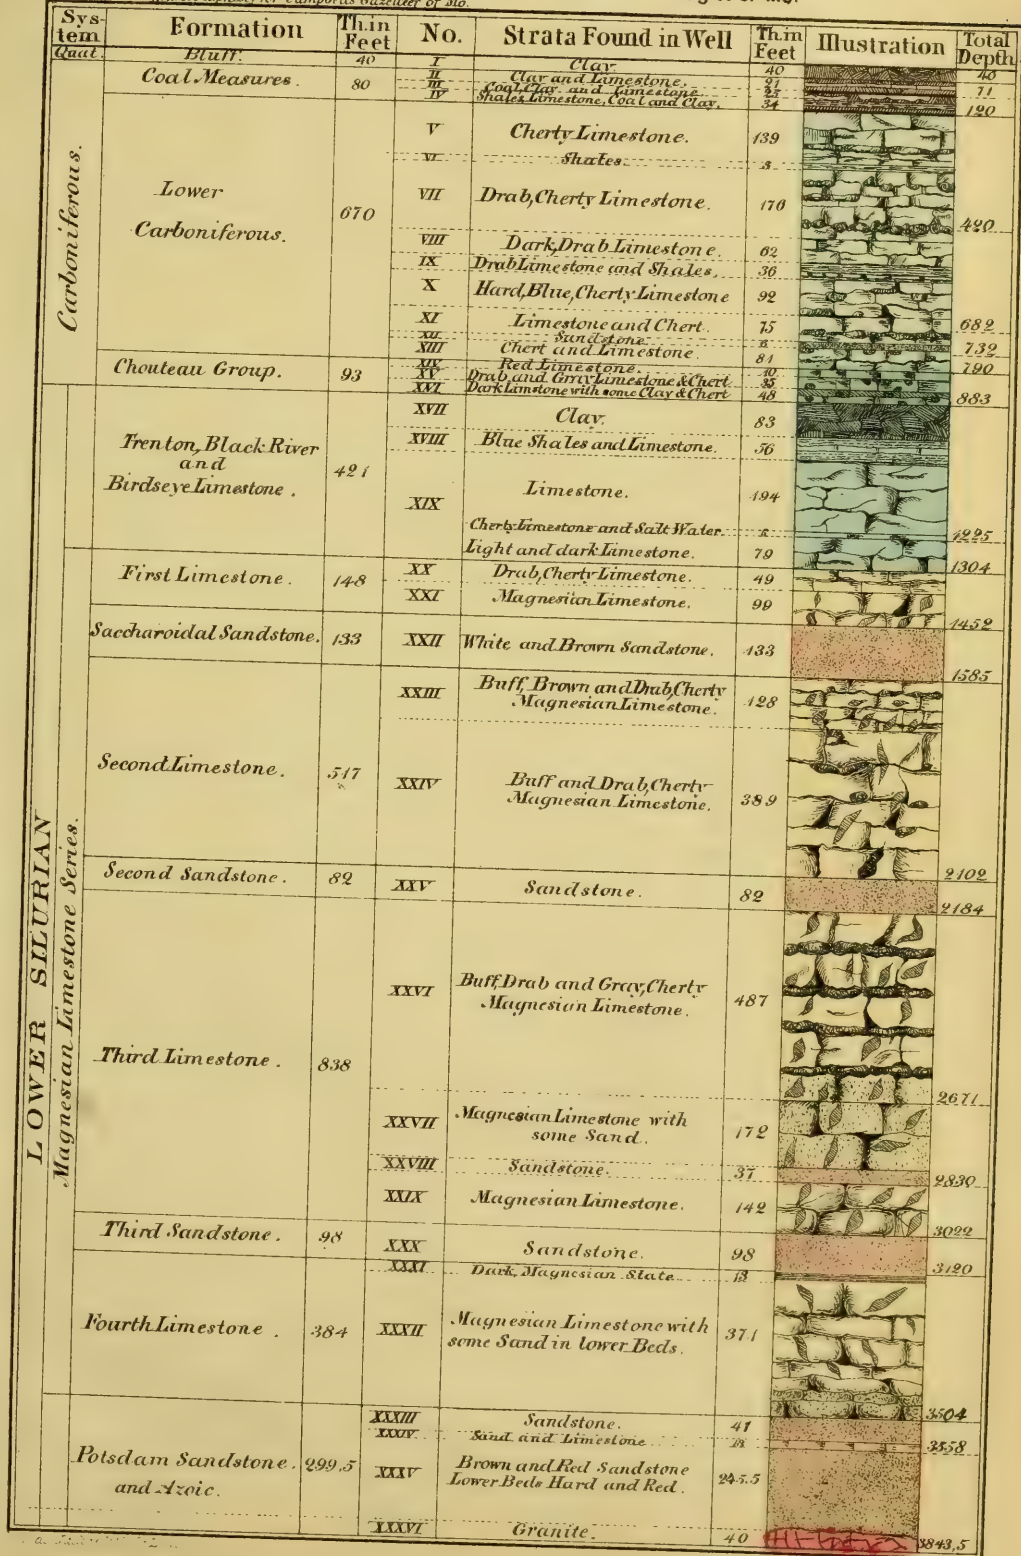 Campbell's Gazetteer of Mo.
System Formation Th.in Feet No. Strata Found in Well Th.in Feet Illustration Total Depth
Quat. Bluff. 40 I Clay. 40 40
Carboniferous.
Coal Measures. 80
II Clay and Limestone. 71
III Coal, Clay and Limestone.
IV Shales, Limestone, Coal and Clay. 34 120
Lower Carboniferous. 670
V Cherty Limestone. 139
VI Shales.
VII Drab, Cherty Limestone. 176 420
VIII Dark, Drab Limestone. 62
IX Drab Limestone and Shales. 36
X Hard, Blue, Cherty Limestone 92
XI Limestone and Chert. 75 682
XII Sandstone 732
XIII Chert and Limestone. 81
Chouteau Group. 93
XIV Red Limestone. 10 790
XV Drab and Gray Limestone & Chert 35
XVI Dark Limstone with some Clay & Chert 48 883
LOWER SILURIAN
Trenton, Black River and Birdseye Limestone. 421
XVII Clay. 83
XVIII Blue Shales and Limestone. 56
XIX Limestone. 194
Cherty Limestone and Salt Water. 1225
Light and dark Limestone. 79 1304
Magnesian Limestone Series.
First Limestone. 148
XX Drab, Cherty Limestone. 49
XXI Magnesian Limestone. 99 1452
Saccharoidal Sandstone. 133 XXII White and Brown Sandstone. 133 1585
Second Limestone. 517
XXIII Buff, Brown and Drab, Cherty Magnesian Limestone. 128
XXIV Buff and Drab, Cherty Magnesian Limestone. 389 2102
Second Sandstone. 82 XXV Sandstone. 82 2184
Third Limestone. 838
XXVI Buff, Drab and Gray, Cherty Magnesian Limestone. 487 2671
XXVII Magnesian Limestone with some Sand. 172
XXVIII Sandstone. 37 2830
XXIX Magnesian Limestone. 142 3022
Third Sandstone. 98 XXX Sandstone. 98 3120
Fourth Limestone. 384
XXXI Dark, Magnesian Slate 13
XXXII Magnesian Limestone with some Sand in lower Beds. 371 3504
Potsdam Sandstone. and Azoic. 299,5
XXXIII Sandstone. 41
XXXIV Sand and Limestone 13 3558
XXXV Brown and Red Sandstone Lower Beds Hard and Red. 245.5
XXXVI Granite. 40 3843,5